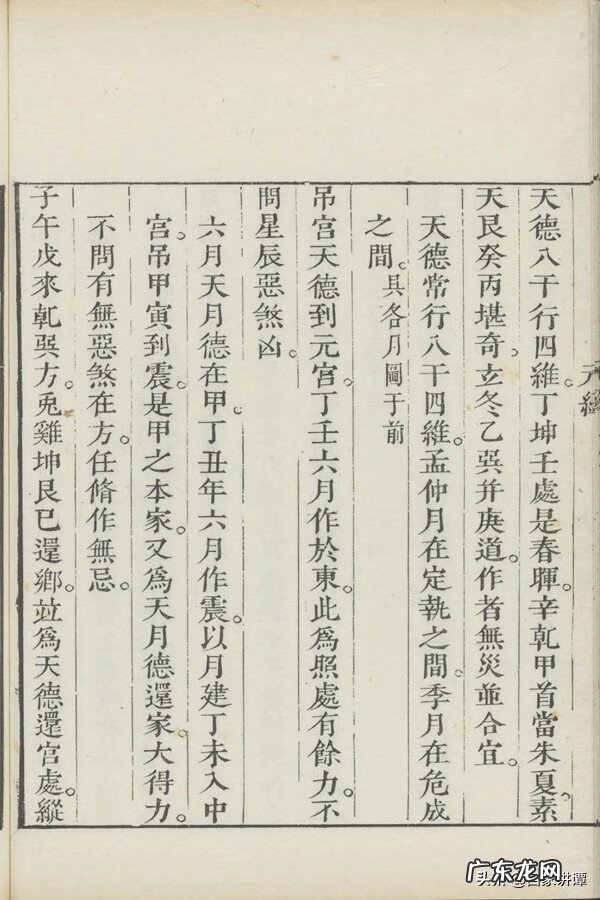 元經
天德八干行四維。丁坤壬處是春暉。辛乾甲首當朱夏。素
天艮癸丙堪奇。立冬乙巽并庚道。作者無災並合宜。
天德常行八干四維。孟仲月在定執之間。季月在危成
之間。具各月圖于前
吊宮天德到元宮。丁壬六月作於東。此為照處有餘力。不
問星辰惡煞凶。
六月天月德在甲。丁丑年六月作震。以月建丁未入中
宮。吊甲寅到震。是甲之本家。又為天月德還家大得力。
不問有無惡煞在方。任脩作無忌。
子午戊來乹巽方。兎雞坤艮已還鄉。竝為天德還宮處。縱
广东龙网
头条@百家讲谭